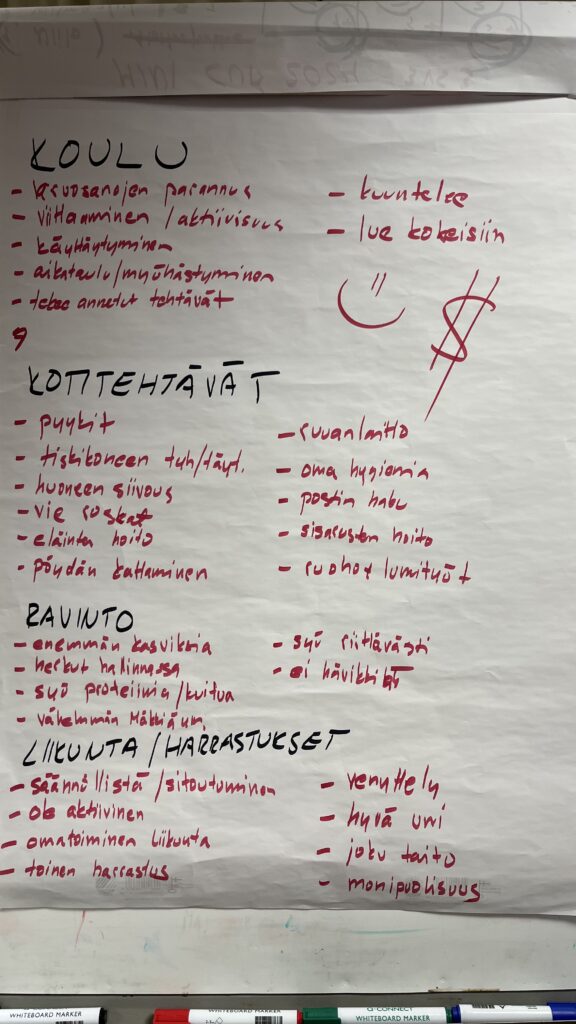 MINI CUP 2024
KOULU
- arvosanojen parannus
- viittaaminen / aktiivisuus
- käyttäytyminen
- aikataulu/myöhästyminen
- tekee annetut tehtävät
- kuuntelee
- lue kokeisiin
$
9
KOTITEHTÄVÄT
- pyykit
- tiskikoneen tyh/täyt.
- huoneen siivous
- vie roskat
- eläinten hoito
- pöydän kattaminen
- ruuanlaitto
- oma hygienia
- postin haku
- sisarusten hoito
- ruohot lumityöt
RAVINTO
- enemmän kasviksia
- herkut hallinnassa
- syö proteiinia/kuitua
- vähemmän mäkkiä
- syö riittävästi
- ei hävikkiä
LIIKUNTA/HARRASTUKSET
- säännöllistä /sitoutuminen
- ole aktiivinen
- omatoiminen liikunta
- toinen harrastus
- venyttely
- hyvä uni
- joku taito
- monipuolisuus
WHITEBOARD MARKER
WHITEBOARD MARKER
Q-CONNECT
WHITEBOARD MARKER
WHITEBOARD MARKER